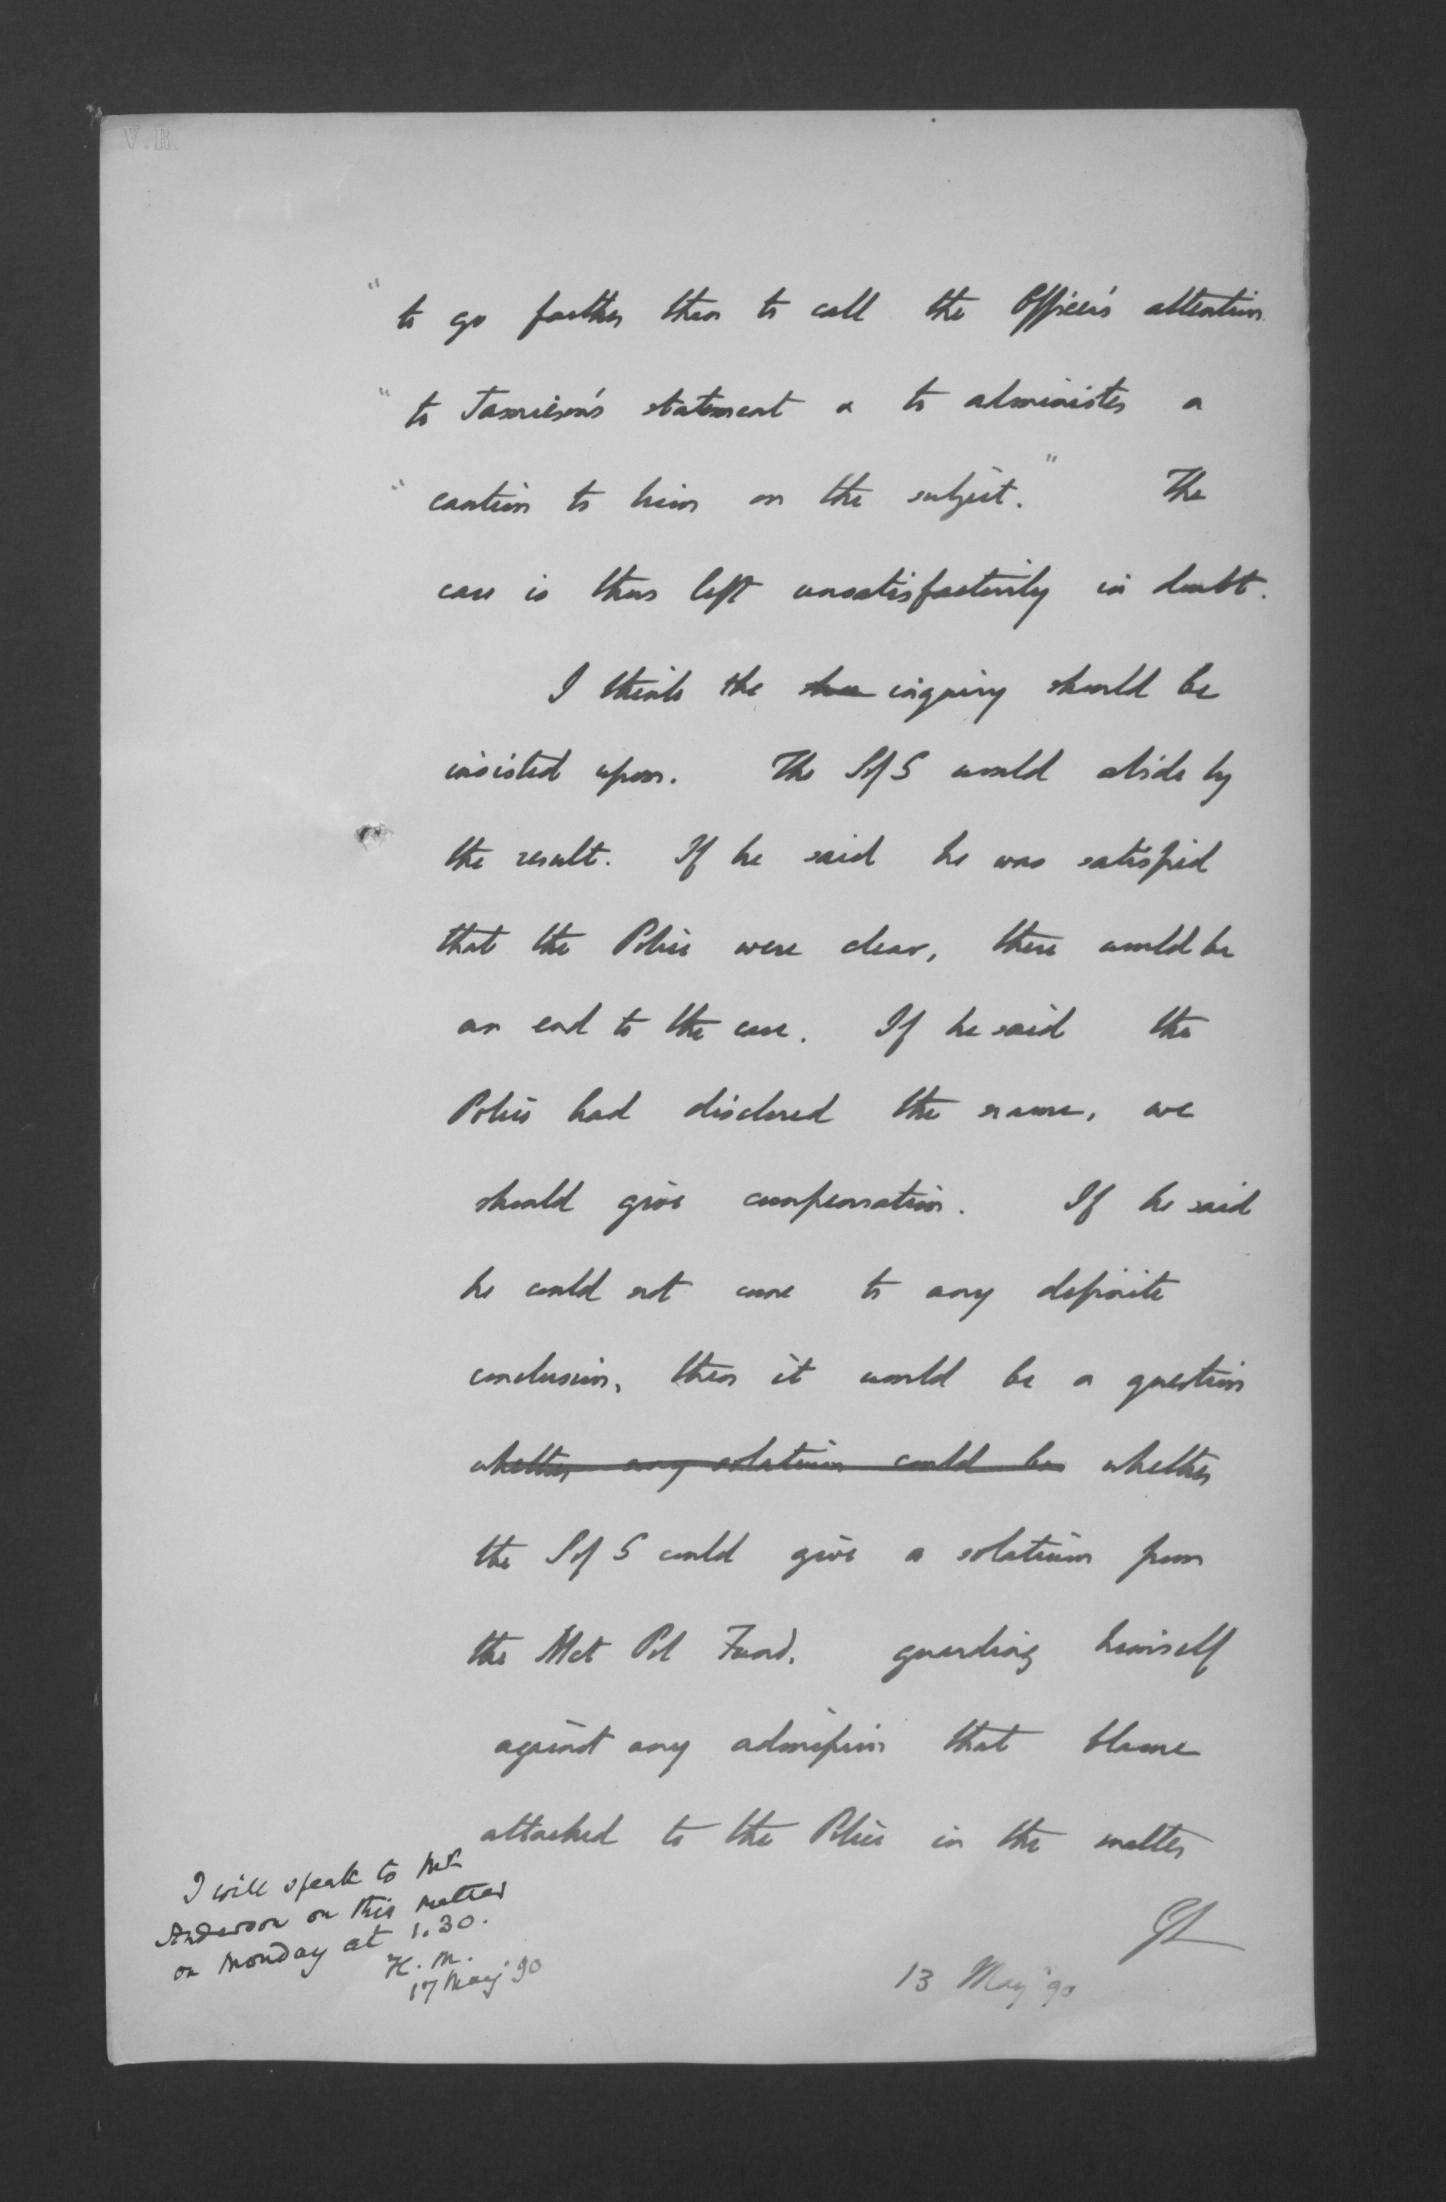 V.R.
" to go farther than to call the Officer's attention
" to Jamieson's statement & to administer a
" caution to him on the subject." The
case is thus left unsatisfactorily in doubt.
I think the inquiry should be
insisted upon. The S of S would abide by
the result. If he said he was satisfied
that the Police were clear, there would be
an end to the case. If he said the
Police had disclosed the name, we
should give compensation. If he said
he could not come to any definite
conclusion, then it would be a question
whether any solatium could be whether
the S of S could give a solatium from
the Met Pol Fund, guarding himself
against any admission that blame
attached to the Police in the matter
GL
13 May '90
I will speak to Mr
Anderson on this matter
on Monday at 1.30.
H. M.
17 May '90